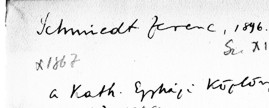 Schmiedt Ferenc, 1896.
Sz. X1
x1867
a Kath. Egyházi Közlön